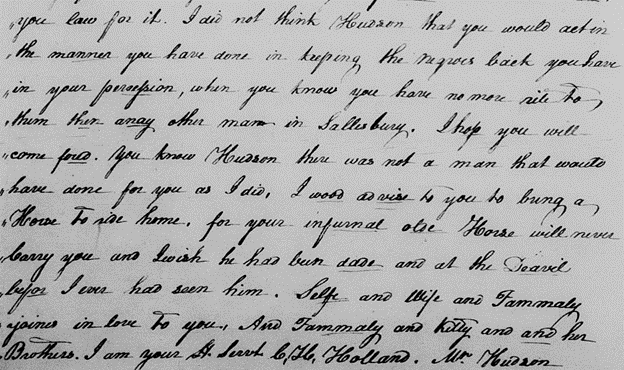 you law for it. I did not think Hudson that you would act in
"the manner you have done in keeping the Negroes back you have
"in your persession, when you know you have no more rite to,
"them then anay other man in Sallesbury. I hop you will
"come foud. you know Hudson there was not a man that would
"have done for you as I did, I wood advise to you to bring a
"Horse to ride home. for your infurnal olde Horse will never
"carry you and I wish he had bun dade and at the Deavil
"befor I ever had seen him. Selfe and Wife and Fammaly
"joines in love to you, And Fammaly and Kitty and and her
"Brothers. I am your H. Servt C, H, Holland. Mr. Hudson